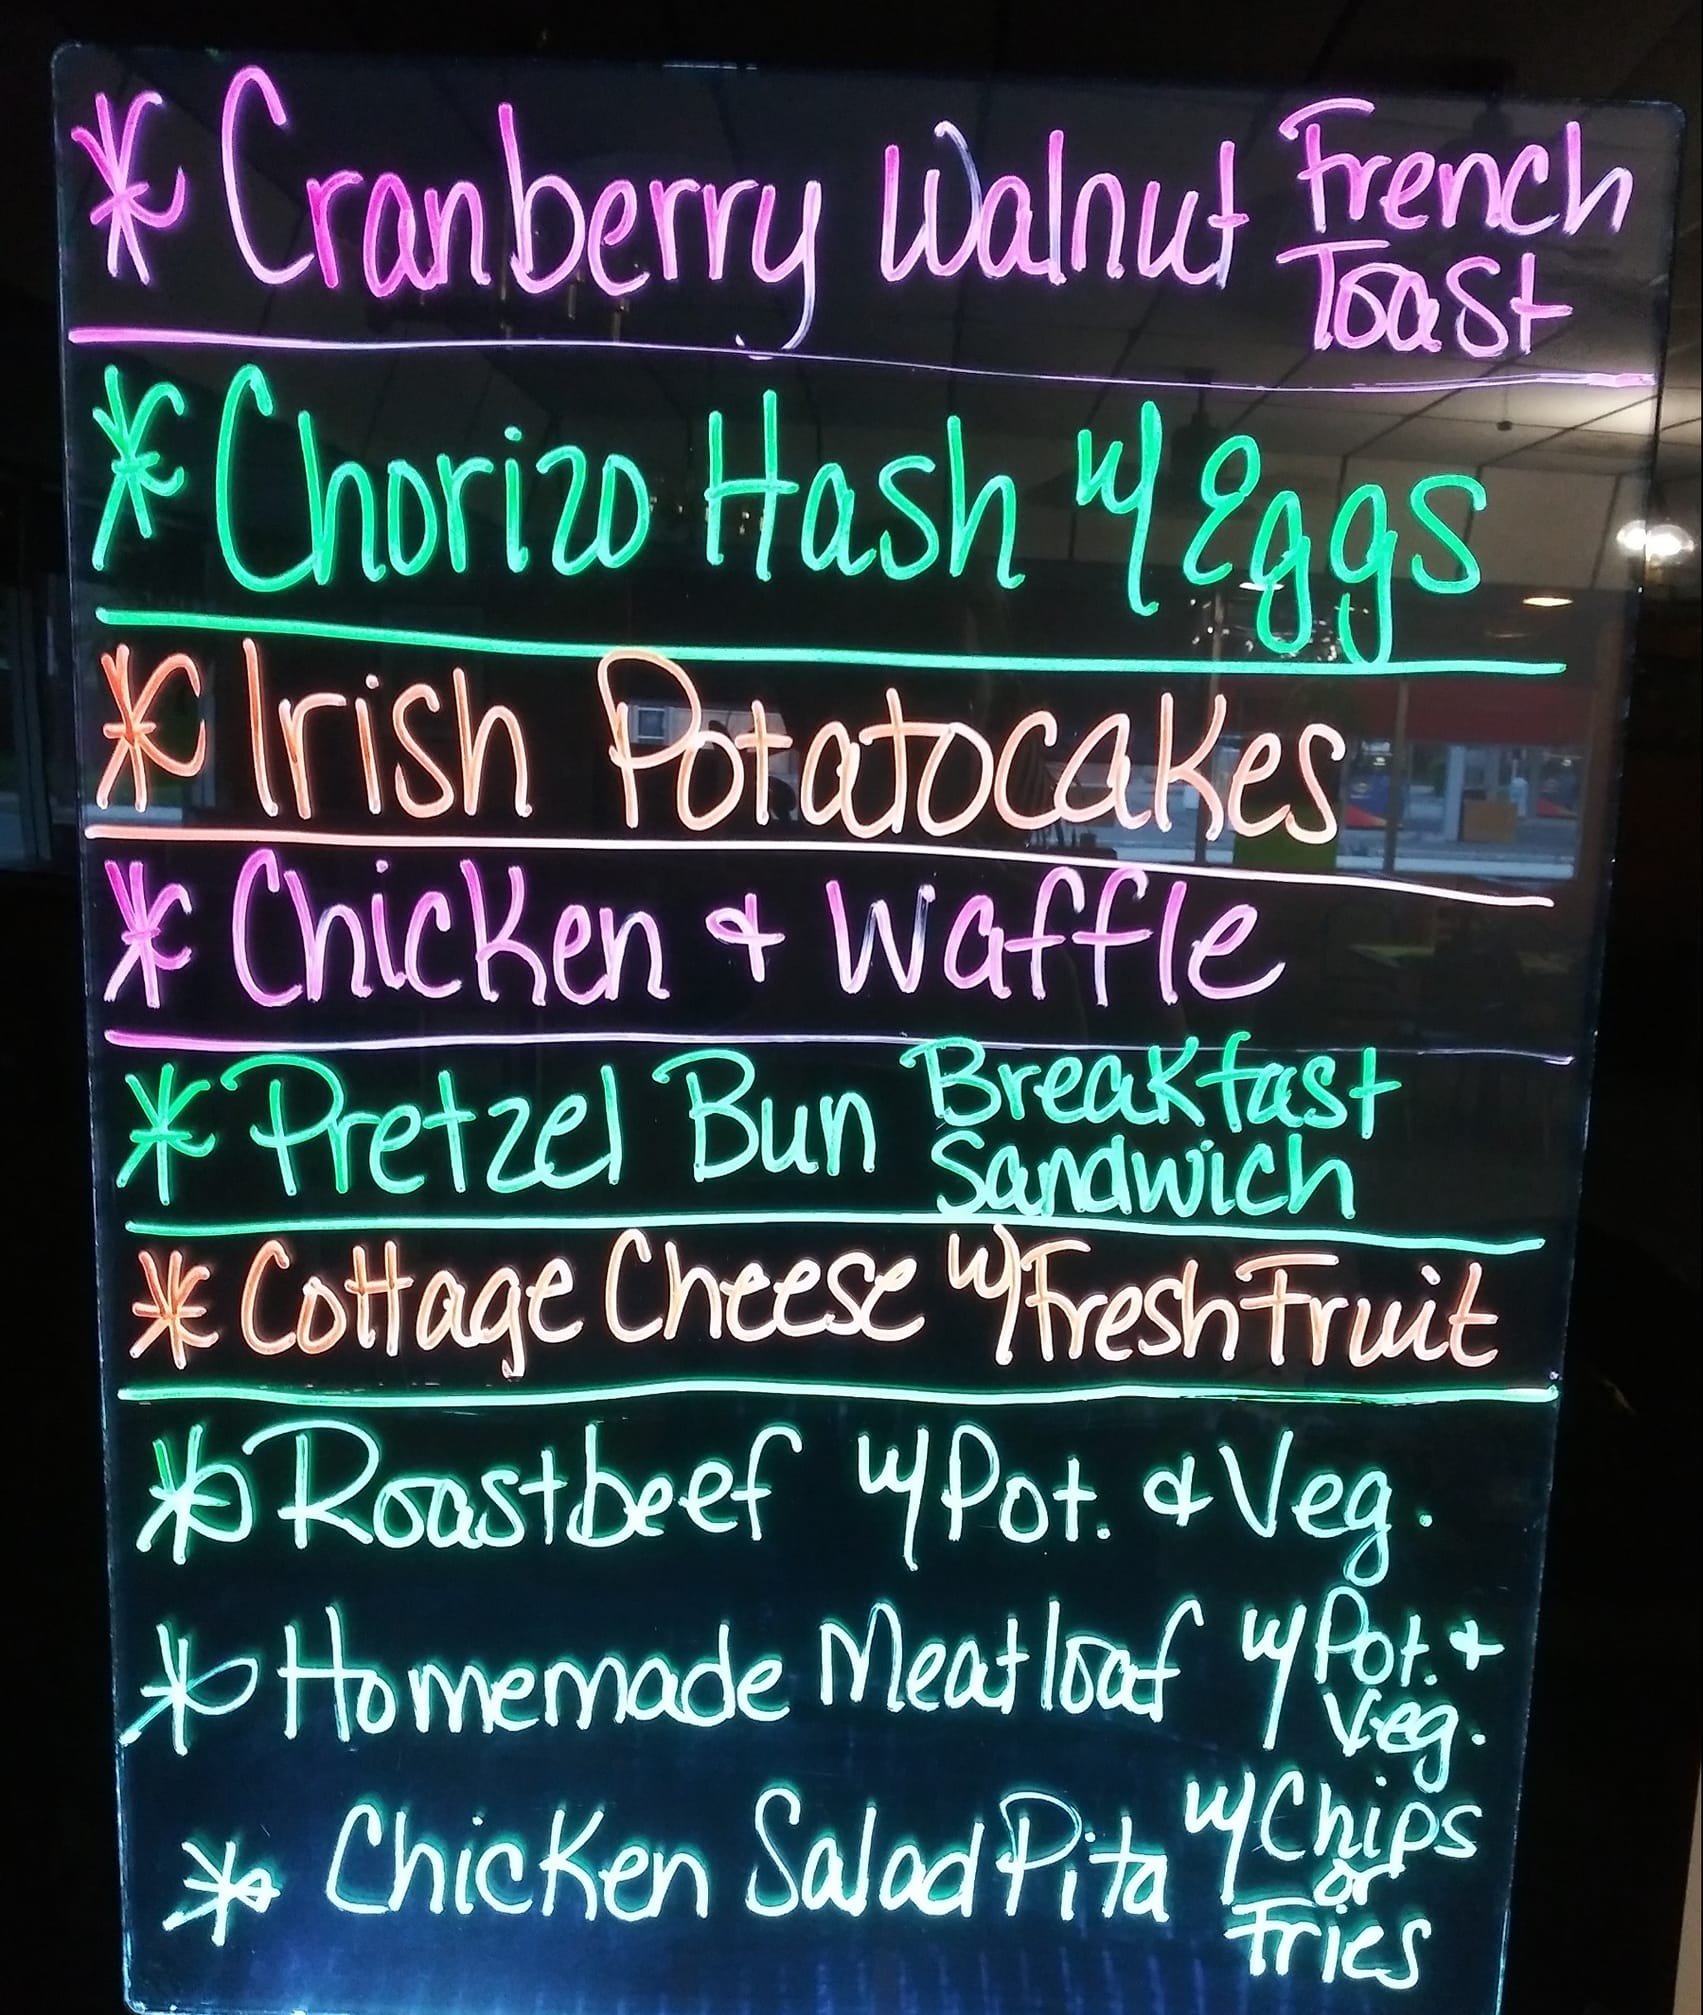 * Cranberry Walnut French
Toast
* Chorizo Hash w/ Eggs
* Irish Potatocakes
* Chicken & Waffle
* Pretzel Bun Breakfast
Sandwich
* Cottage Cheese w/ Fresh Fruit
* Roastbeef w/ Pot. & Veg.
* Homemade Meatloaf w/ Pot. +
Veg.
* Chicken Salad Pita w/ Chips
or
Fries